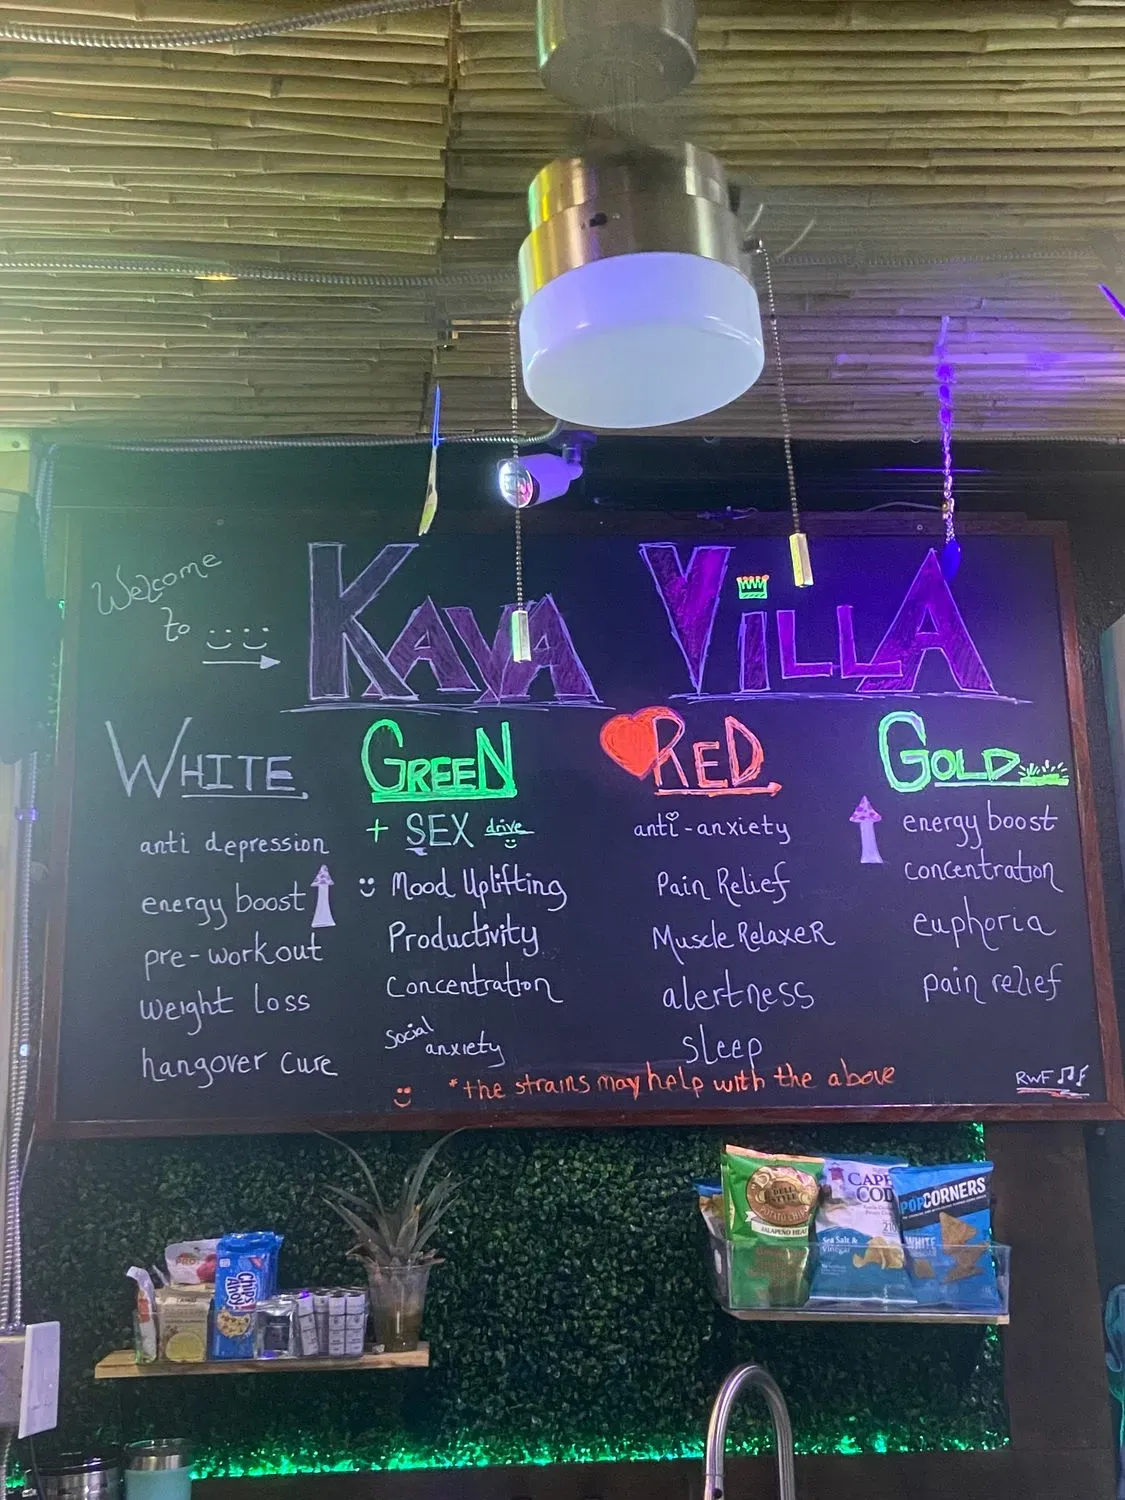 Welcome
to
KAVA VILLA
WHITE
anti depression
energy boost
pre-workout
weight loss
hangover cure
GREEN
+ SEX drive
Mood Uplifting
Productivity
Concentration
Social
anxiety
RED
anti-anxiety
Pain Relief
Muscle RelaxeR
alertness
sleep
GOLD
energy boost
concentration
euphoria
pain relief
*the strains may help with the above
RWF
CHIPS
AHOY!
DELI
STYLE
POTATO CHIPS
JALAPEÑO HEAT
CAPE
COD
Sea Salt &
Vinegar
POPCORNERS
WHITE